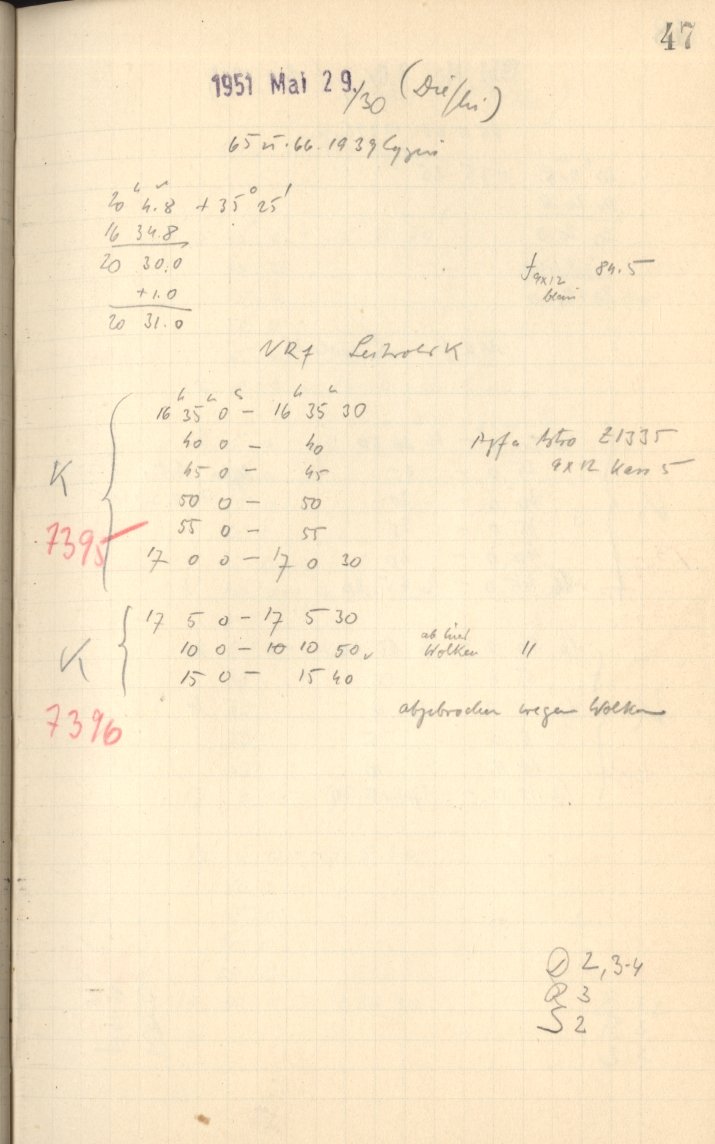 47
1951 Mai 29./30 (Die/Mi)
65 VI.66.1939 Cygni
20ʰ 4.8 +35° 25'
16 34.8
20 30.0
+1.0
20 31.0
f 9x12 84.5
blau
16ʰ 35 0 - 16ʰ 35 30
40 0 - 40
45 0 - 45
50 0 - 50
55 0 - 55
17 0 0 - 17 0 30
K
7395
Agfa Astro Z1335
9x12 Kass 5
17 5 0 - 17 5 30
10 0 - 10 10 50
15 0 - 15 40
K
7396
ab hier
Wolken "
abgebrochen wegen Wolken
D 2, 3-4
R 3
S 2